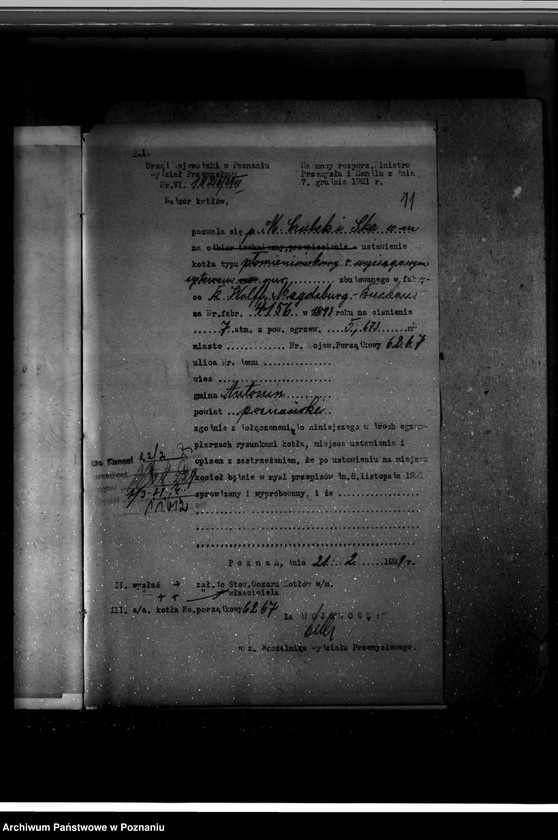 Urząd Wojewódzki w Poznaniu
Wydział Przemysłowy
Nr.VI.
Nadzór kotłów.
Na mocy rozporz. Ministra
Przemysłu i Handlu z dnia
7. grudnia 1921 r.
11
pozwala się p.
na odbiór techniczny ustawienie
kotła typu płomieniówkowy z wyciąganym
zbudowanego w fabry-
ce R. Wolff, Magdeburg-Buckau
za Nr.fabr. 4156 w 1893 roku na ciśnienie
7 atm. z pow. ogrzew. 5,673 m²
miasto Nr. Wojew.Porządkowy 6267
ulica Nr. domu
wieś
gmina Antonin
powiat poznański
zgodnie z dołączonemi do niniejszego w dwóch egzem-
plarzach rysunkami kotła, miejsca ustawienia i
opisem z zastrzeżeniem, że po ustawieniu na miejscu
kocioł będzie w myśl przepisów dn.6.listopada 19
sprawdzony i wypróbowany, i że
Poznań, dnia 21. 2. 1929 r.
II. wysłać zał. do Stow.Dozoru Kotłów w/m.
właściciela
III. a/a. kotła No.porządkowy 6267
Za WOJEWODĘ:
w z. Naczelnika Wydziału Przemysłowego.
Archiwum Państwowe w Poznaniu